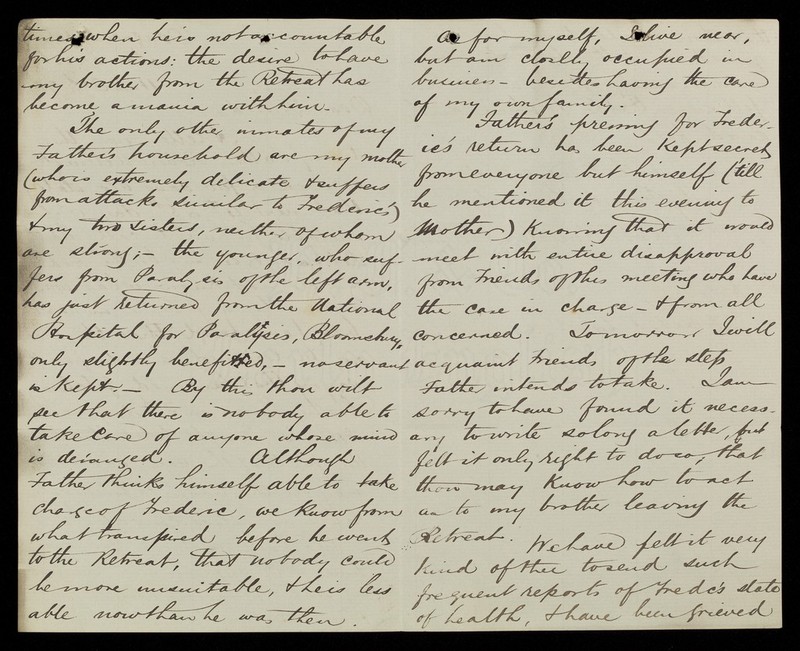 times when he is not accountable
for his actions: the desire to have
my brother from the Retreat has
become a mania with him.
The only other inmates of my
Father's household are my mother
(who is extremely delicate & suffers
from attacks similar to Frederic's)
& my two sisters, neither of whom
are strong;- the younger, who suf-
fers from Paralysis of the left arm,
has just returned from the National
Hospital for Paralysis, Bloomsbury,
only slightly benefitted, - no servant
is kept. - By this thou wilt
see that there is nobody able to
take care of anyone whose mind
is deranged. Although
Father thinks himself able to take
charge of Frederic, we know from
what transpired before he went
to the Retreat, that nobody could
be more unsuitable, & he is less
able now than he was then.
As for myself, I live near,
but am closely occupied in
business - besides having the care
of my own family.
Father's pressing for Freder-
ic's return has been kept secret
from everyone but himself ('till
he mentioned it this evening to
Mother) knowing that it would
meet with entire disapproval
from Friends of this meeting who have
the case in charge - & from all
concerned. Tomorrow I will
acquaint Friends of the step
Father intends to take. I am
sorry to have found it necess-
ary to write so long a letter, but
felt it only right to do so, that
thou may know how to act
as to my brother leaving the
Retreat. We have felt it very
kind of thee to send such
frequent reports of Fredc's state
of health, & have been grieved